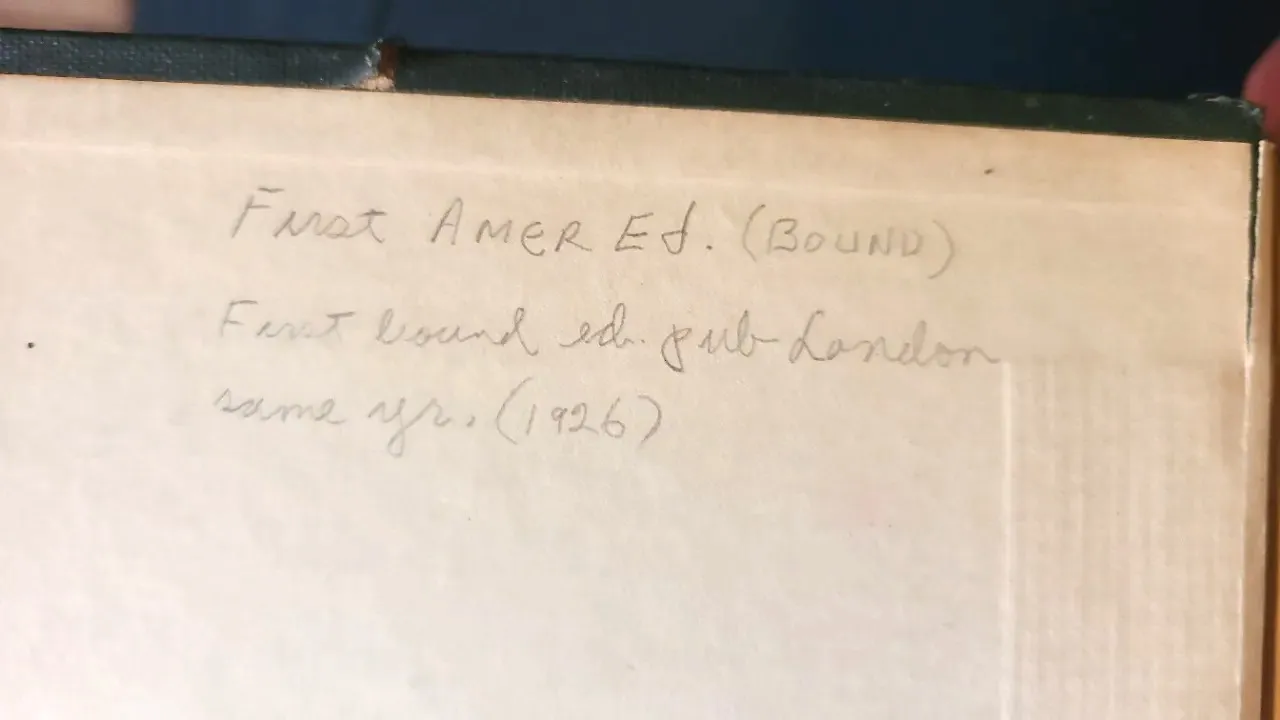 First AMER Ed. (BOUND)
First bound ed. pub London
same yr. (1926)